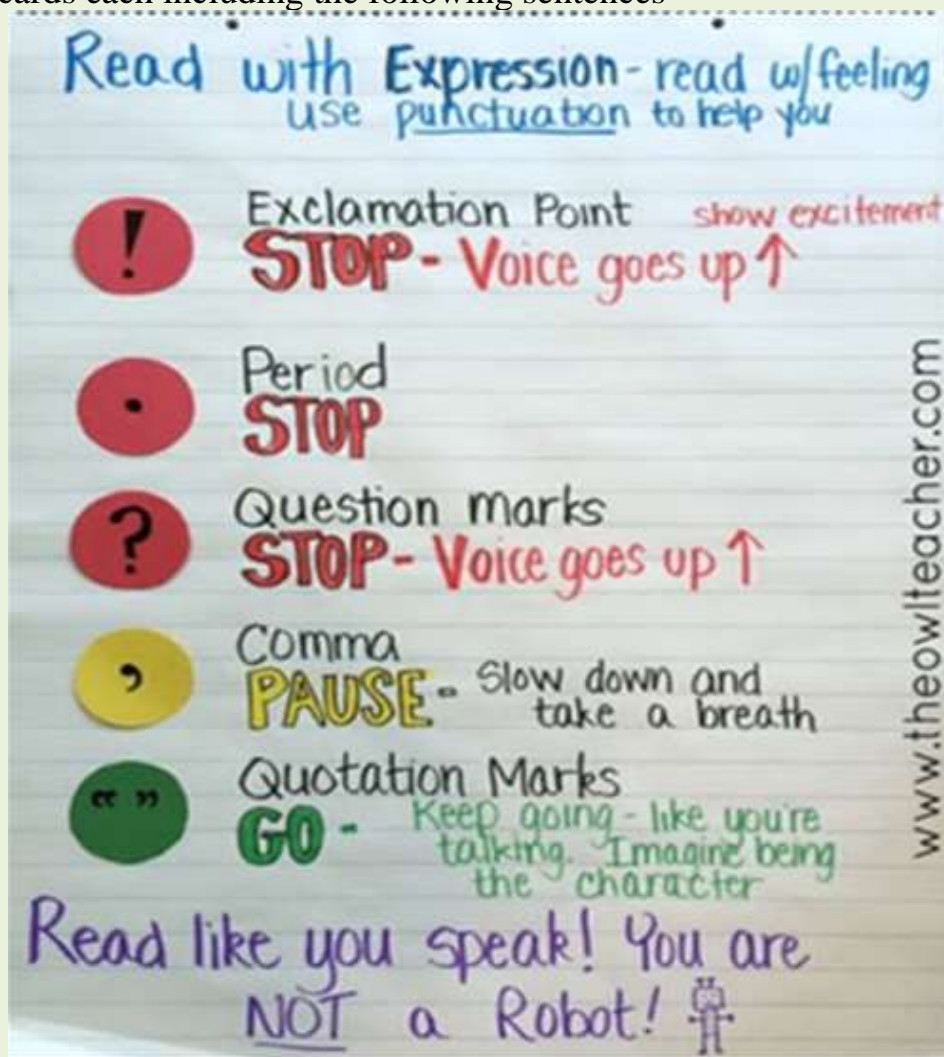 cards each including the following sentences
Read with Expression - read w/feeling
use punctuation to help you
!
Exclamation Point show excitement
STOP - Voice goes up ↑
.
Period
STOP
?
Question marks
STOP - Voice goes up ↑
,
Comma
PAUSE - Slow down and
take a breath
“ ”
Quotation Marks
GO - Keep going - like you're
talking. Imagine being
the character
Read like you speak! You are
NOT a Robot!
www.theowlteacher.com